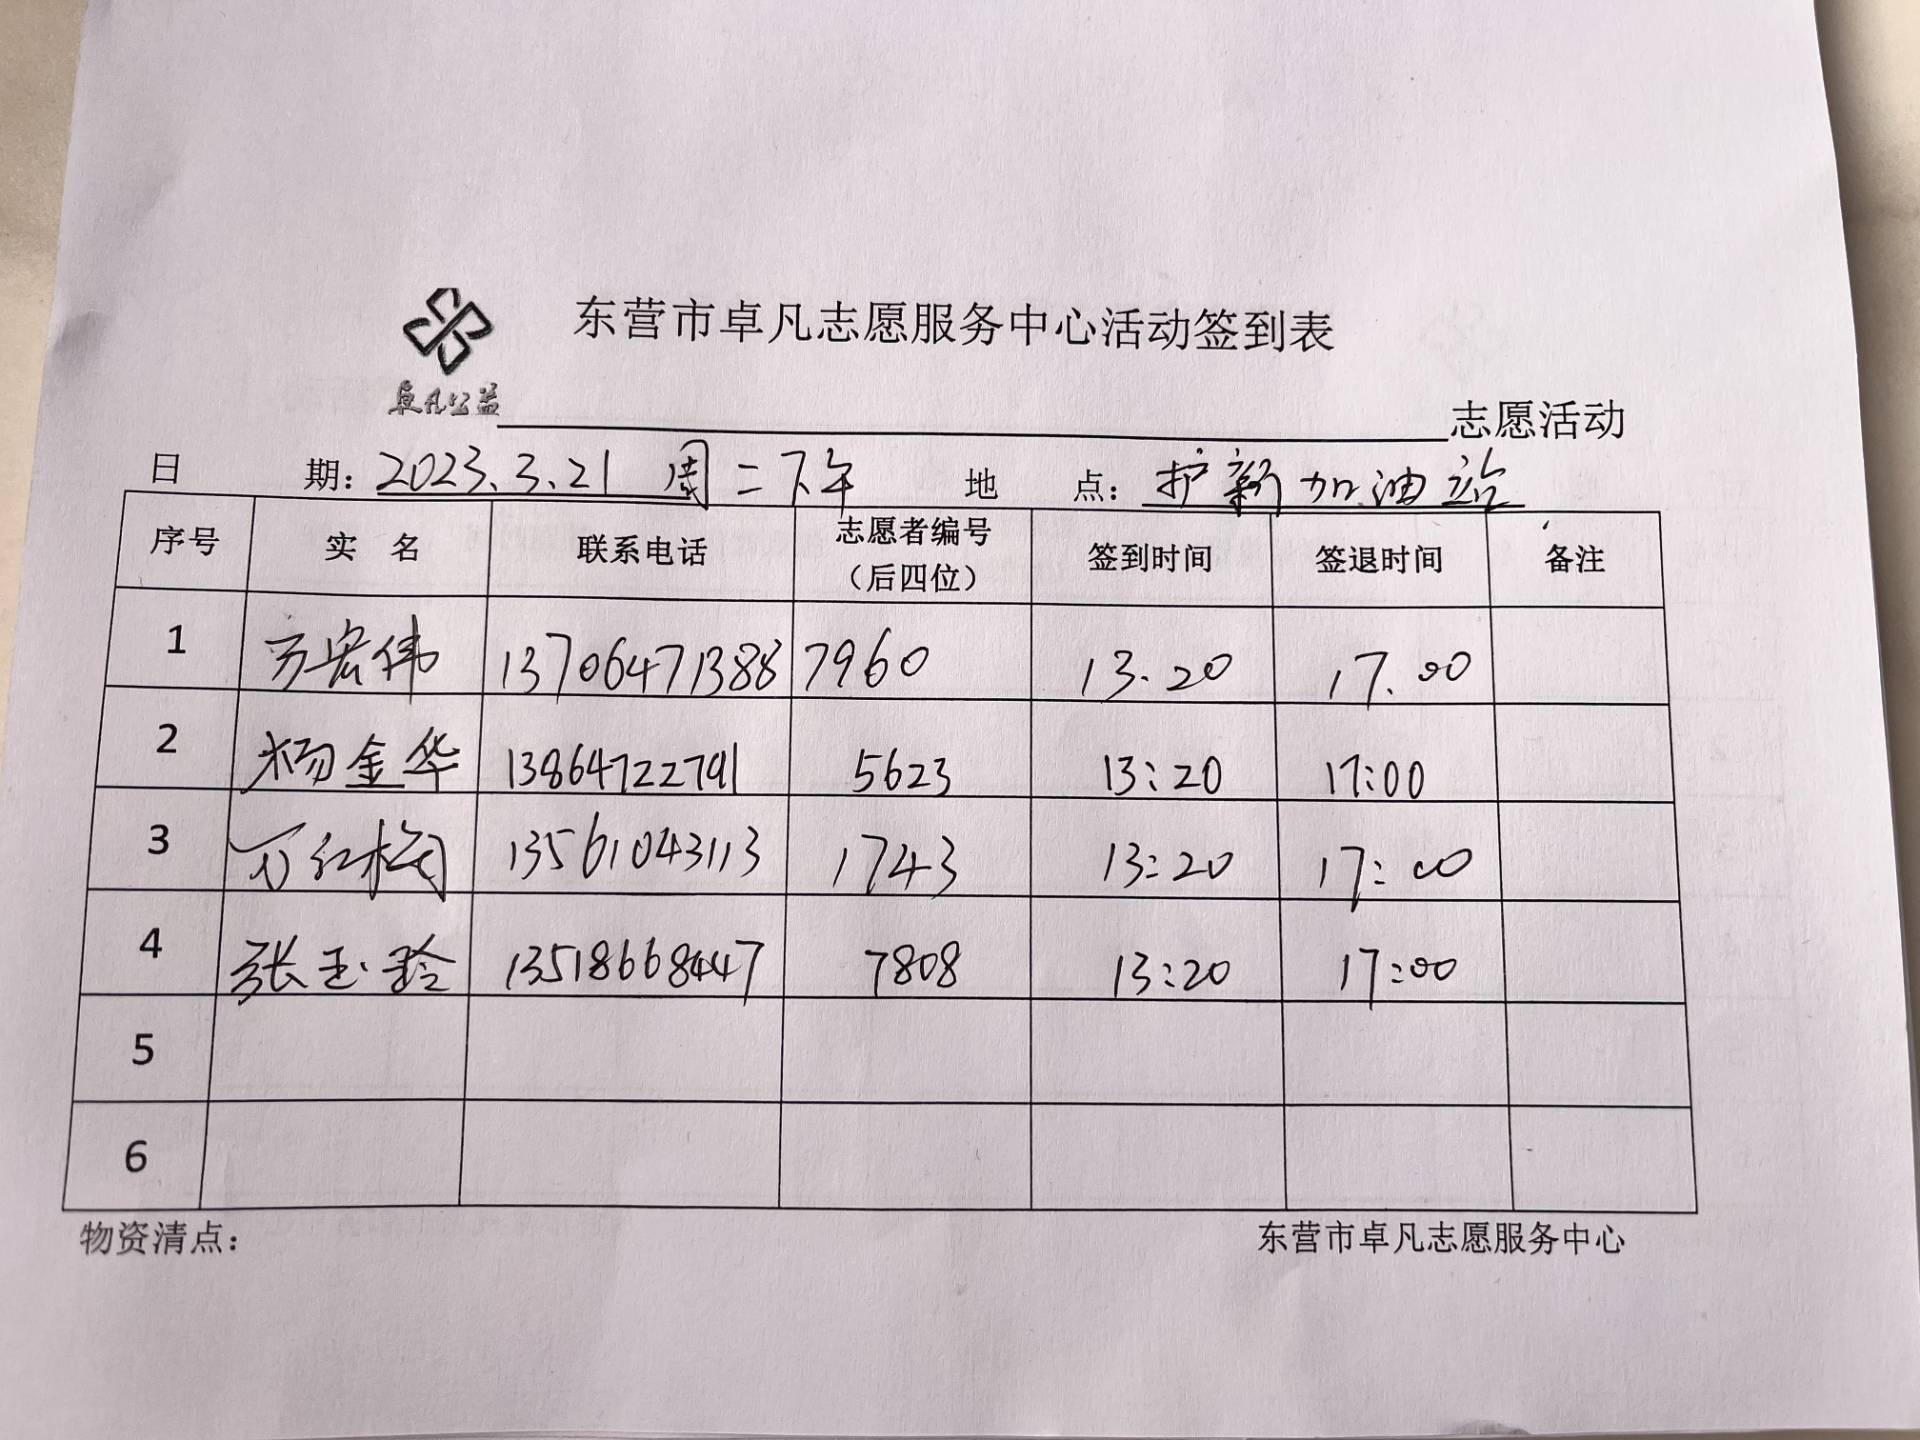 东营市卓凡志愿服务中心活动签到表
卓凡公益
志愿活动
日 期：2023.3.21 周二下午 地 点：护新加油站
序号 实 名 联系电话 志愿者编号（后四位） 签到时间 签退时间 备注
1 万宏伟 13706471388 7960 13.20 17.00
2 杨金华 13864722791 5623 13:20 17:00
3 万红梅 13561043113 1743 13:20 17:00
4 张玉玲 13518668447 7808 13:20 17:00
5
6
物资清点： 东营市卓凡志愿服务中心